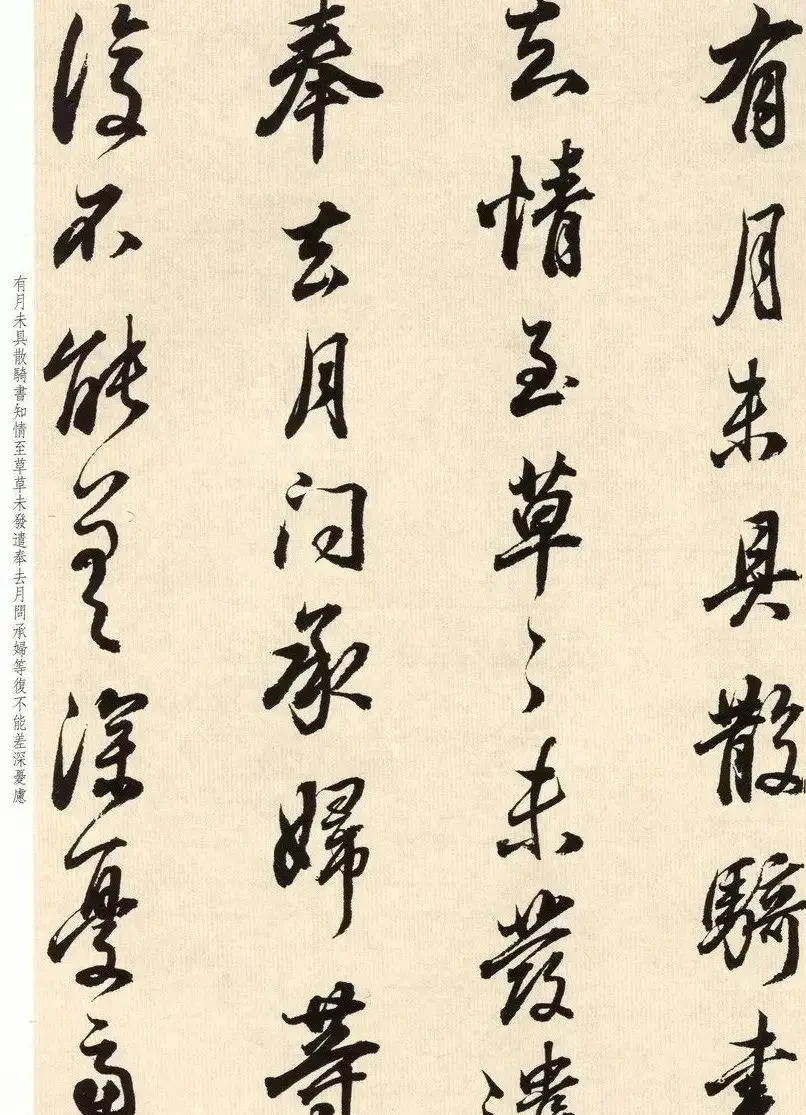 有月未具散騎書
去情至草々未發遣
奉去月問承婦等
復不能差深憂慮
有月未具散騎書知情至草草未發遣奉去月問承婦等復不能差深憂慮